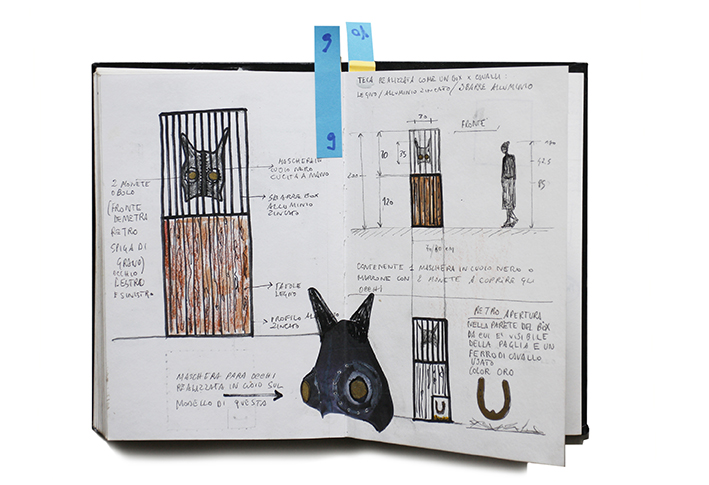 9
9
2 MONETE
OBOLO
(FRONTE
DEMETRA
RETRO
SPIGA DI
GRANO)
OCCHIO
DESTRO
E SINISTRO
MASCHERA IN
CUOIO NERO
CUCITA A MANO
SBARRA BOX
ALLUMINIO
ZINCATO
TAVOLE
LEGNO
PROFILO ALLUMINIO
ZINCATO
MASCHERA PARA OCCHI
REALIZZATA IN CUOIO SUL
MODELLO DI QUESTA
TECA REALIZZATA COME UN BOX X CAVALLI:
LEGNO/ALLUMINIO ZINCATO/SBARRE ALLUMINIO
70
FRONTE
70
75
200
120
85
CONTENENTE 1 MASCHERA IN CUOIO NERO O
MARRONE CON 2 MONETE A COPRIRE GLI
OCCHI
RETRO APERTURA
NELLA PARETE DEL BOX
DA CUI E' VISIBILE
DELLA PAGLIA E UN
FERRO DI CAVALLO
USATO
COLOR ORO